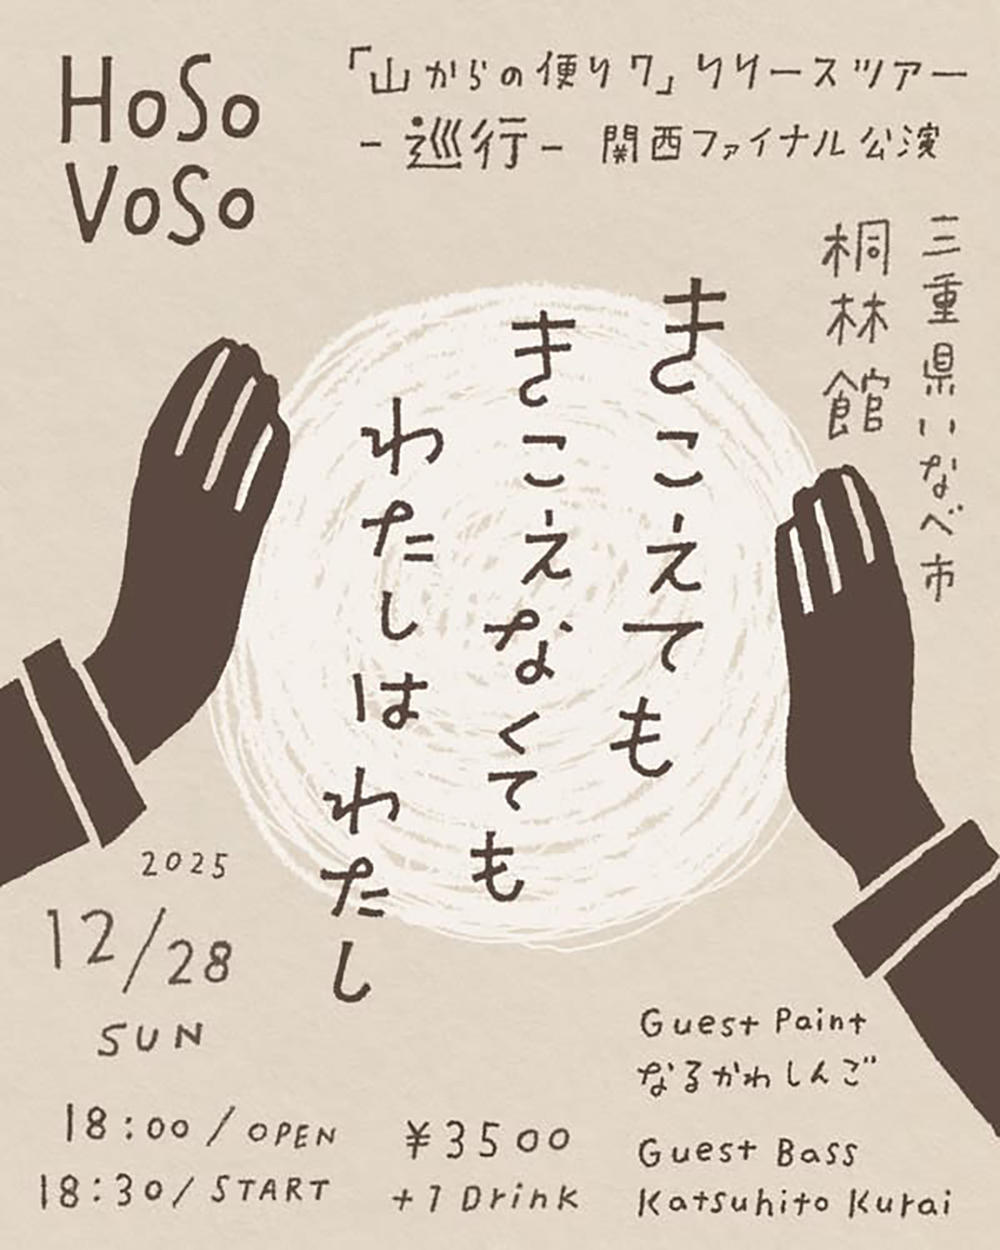 HoSo
VoSo
「山からの便り7」リリースツアー
- 巡行 - 関西ファイナル公演
三重県いなべ市
桐林館
きこえても
きこえなくても
わたしは わたし
2025
12/28
SUN
18:00 / OPEN
18:30 / START
¥3500
+1 Drink
Guest Paint
なるかわしんご
Guest Bass
Katsuhito Kurai